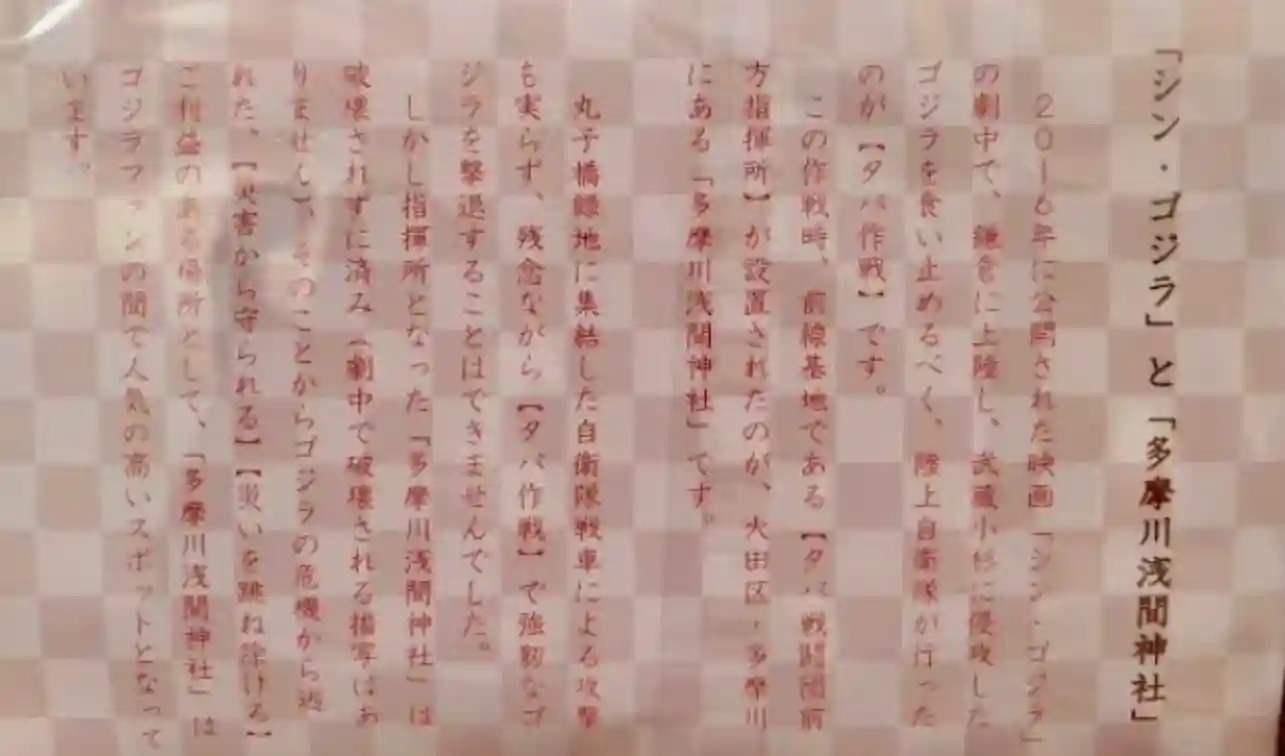 「シン・ゴジラ」と「多摩川浅間神社」
2016年に公開された映画「シン・ゴジラ」
の劇中で、鎌倉に上陸し、武蔵小杉に侵攻した
ゴジラを食い止めるべく、陸上自衛隊が行った
のが【タバ作戦】です。
この作戦時、前線基地である【タバ戦闘団前
方指揮所】が設置されたのが、大田区・多摩川
にある「多摩川浅間神社」です。
丸子橋緑地に集結した自衛隊戦車による攻撃
も実らず、残念ながら【タバ作戦】で強靭なゴ
ジラを撃退することはできませんでした。
しかし指揮所となった「多摩川浅間神社」は
破壊されずに済み(劇中で破壊される描写はあ
りません)、そのことからゴジラの危機から逃
れた、【災害から守られる】【災いを跳ね除ける】
ご利益のある場所として、「多摩川浅間神社」は
ゴジラファンの間で人気の高いスポットとなって
います。